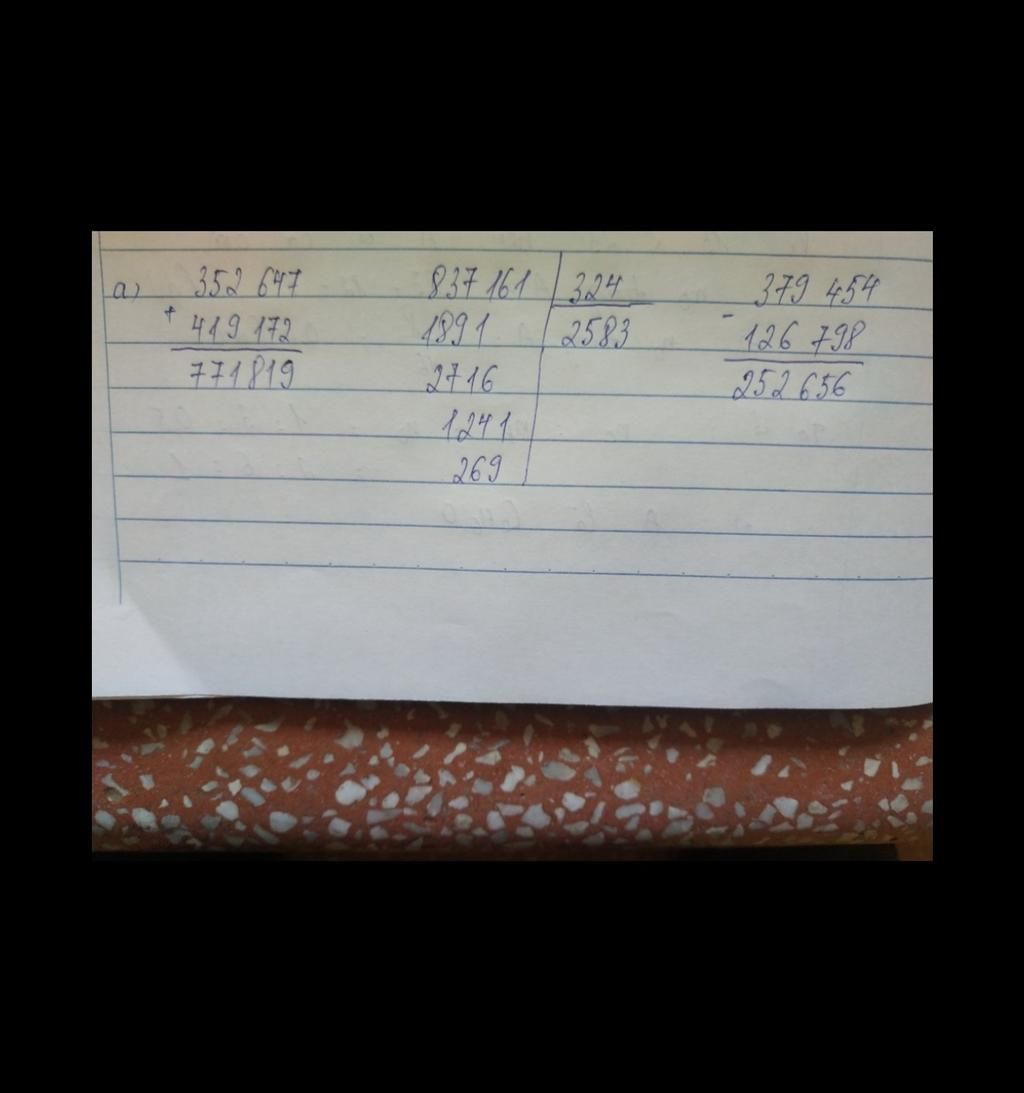 a) 352 647 837 161 324 379 454
+ 419 172 1891 2583 - 126 798
771819 2716 252 656
1241
269